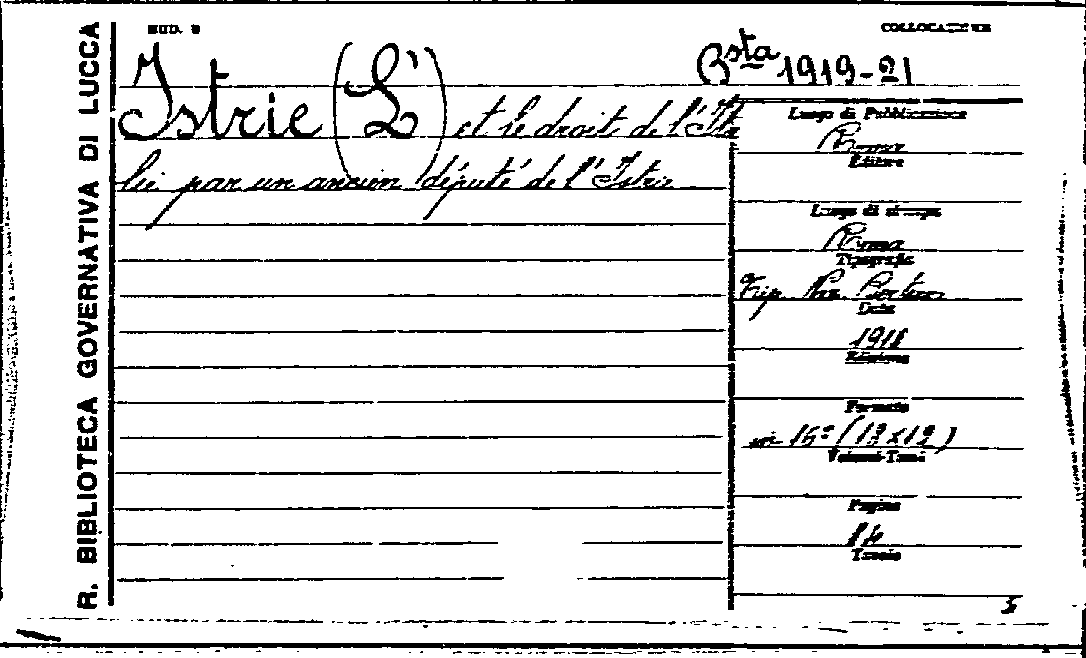 R. BIBLIOTECA GOVERNATIVA DI LUCCA
MOD. 8
COLLOCAZIONE
Bsta 1919-21
Istrie (L') et le droit de l'Ita
lie par un ancien député de l'Istrie
Luogo di Pubblicazione
Roma
Editore
Luogo di stampa
Roma
Tipografia
Tip.
Data
1918
Edizione
Formato
in 16º (19x12)
Volumi-Tomi
Pagine
14
Tavole
5